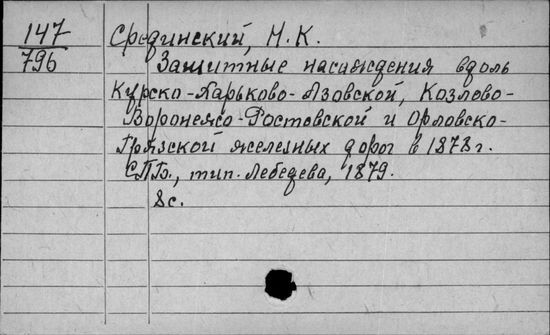 147
796
Срединский, Н. К.
Защитные насаждения вдоль
Курско-Харьково-Азовской, Козлово-
Воронежо-Ростовской и Орловско-
Грязской железных дорог в 1878 г.
СПБ., тип. Лебедева, 1879.
8 с.